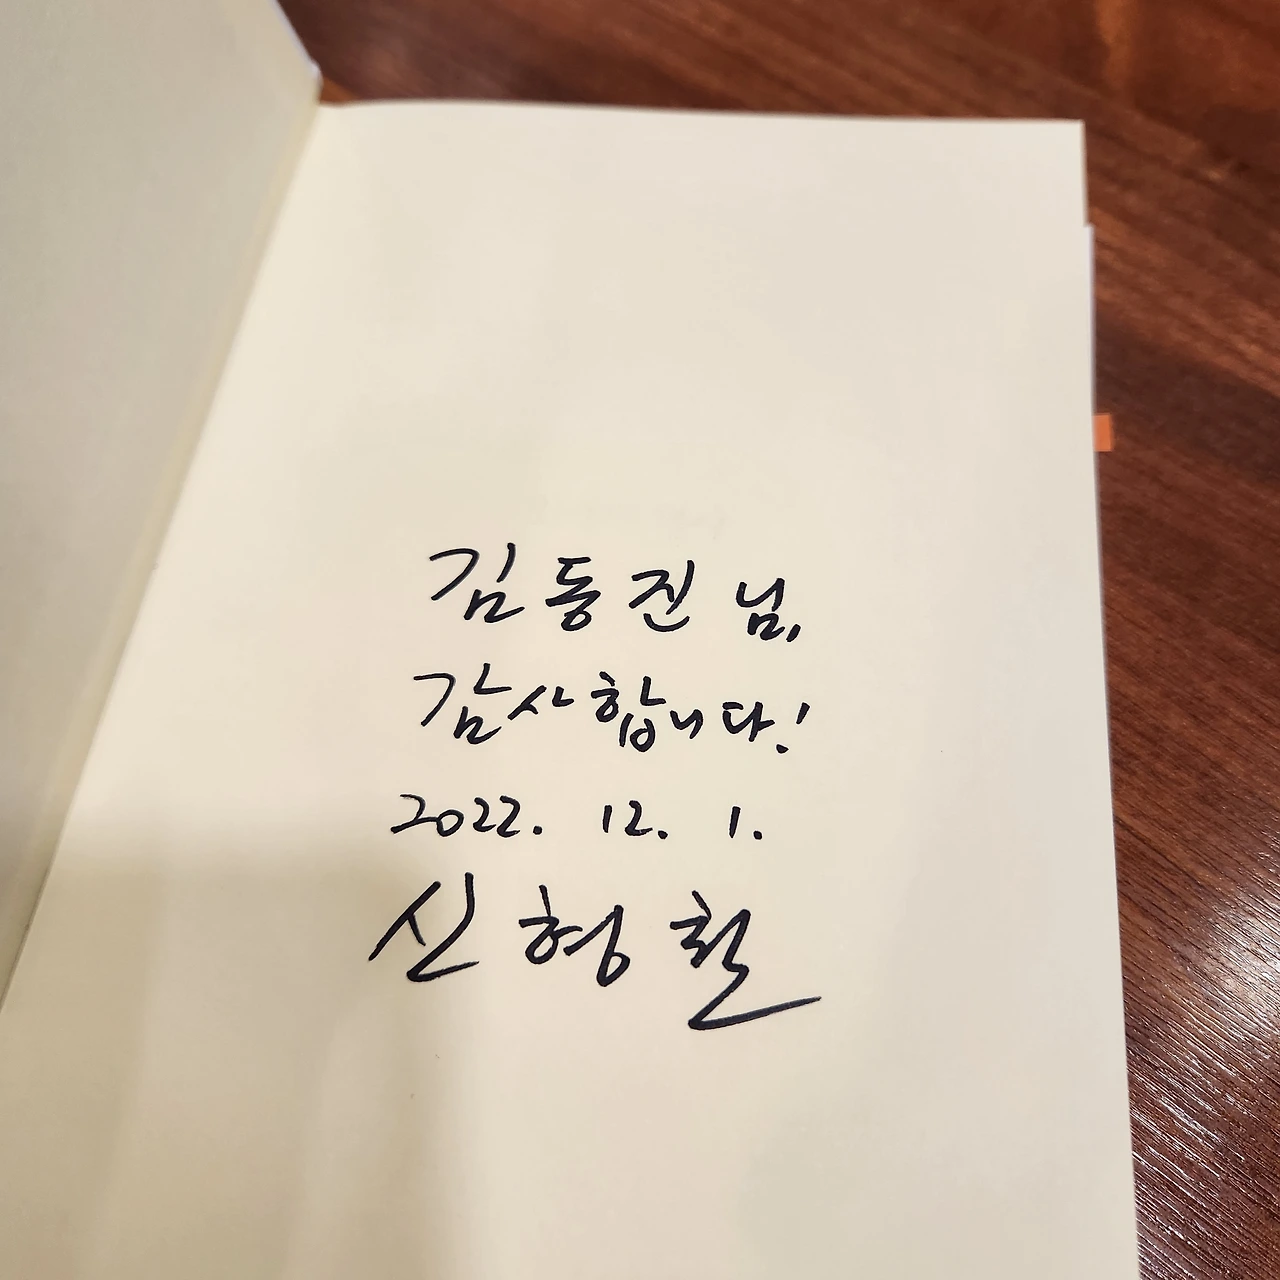 김동진 님,
감사합니다!
2022. 12. 1.
신형철